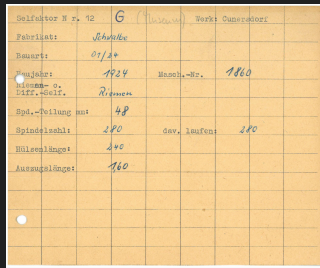 Selfaktor N r. 12 G (Museum) Werk: Cunersdorf
Fabrikat: Schwalbe
Bauart: 01/24
Baujahr: 1924 Masch.-Nr. 1860
Riemen- o.
Diff.-Self. Riemen
Spd.-Teilung mm: 48
Spindelzahl: 280 dav. laufen: 280
Hülsenlänge: 240
Auszugslänge: 1,60